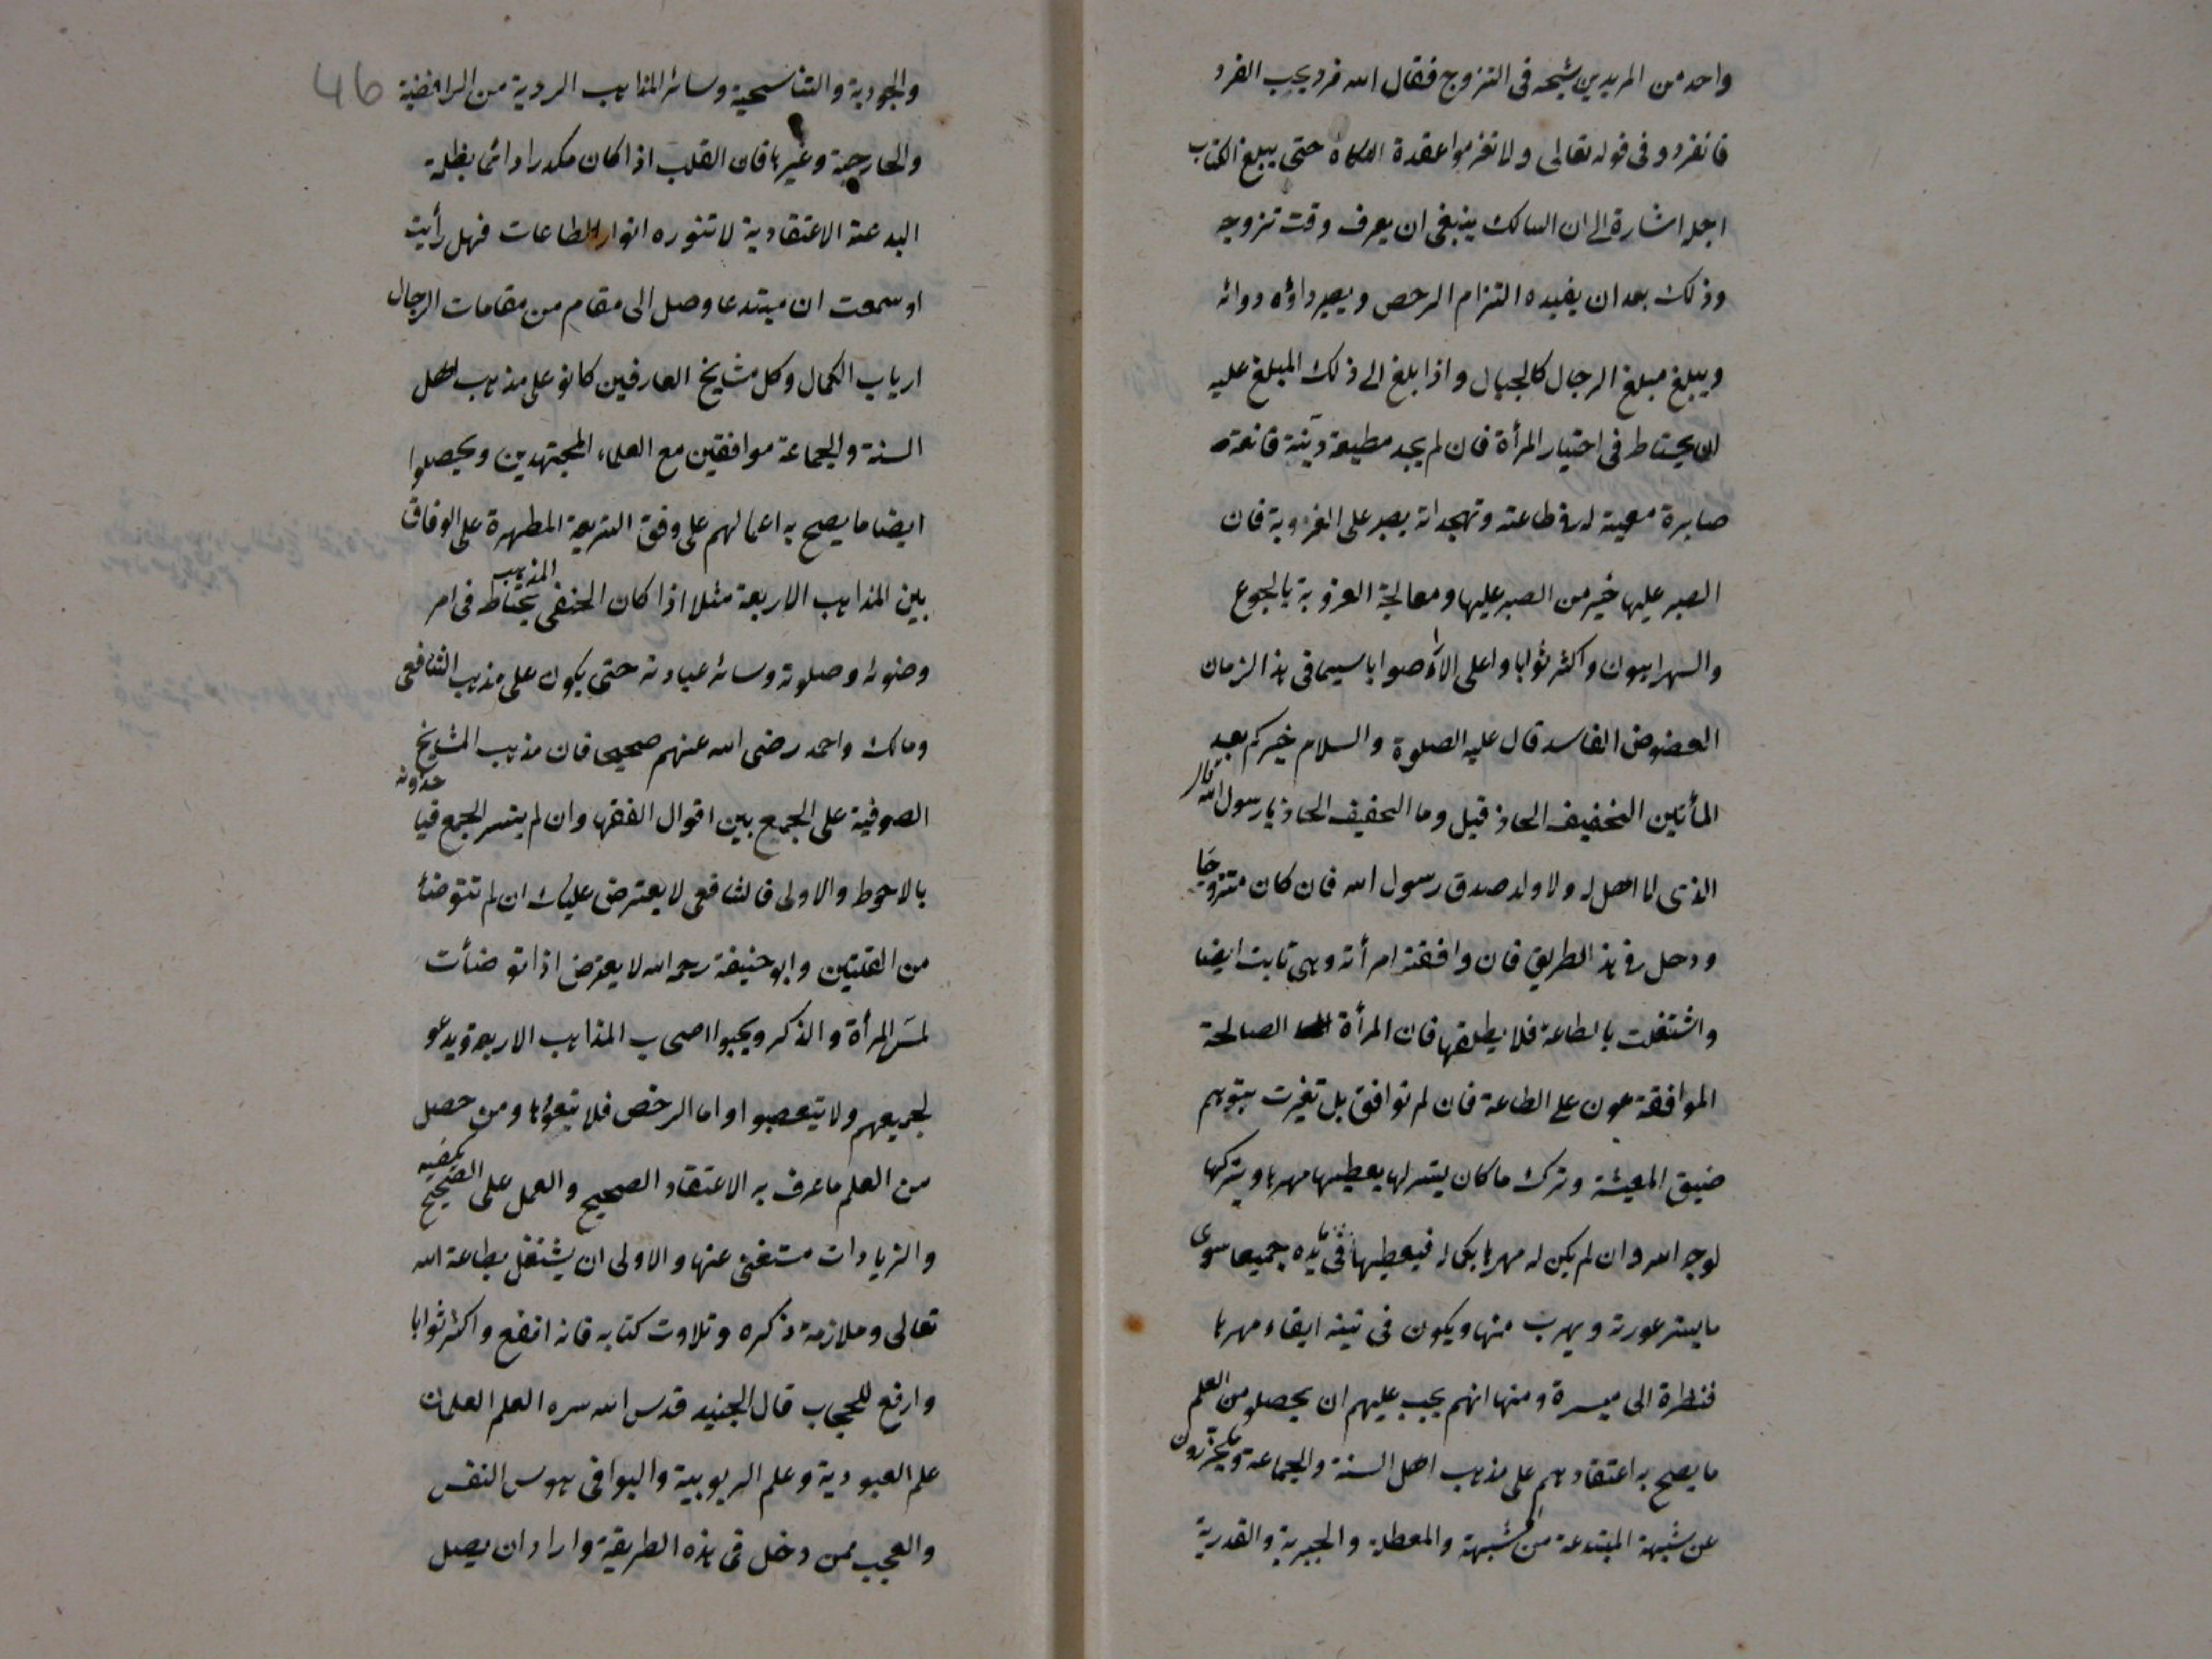 واحد من المريدين شيخه فى التزوج فقال الله فرد يحب الفرد
فانفرد وفى قوله تعالى ولا تعزموا عقدة النكاح حتى يبلغ الكتاب
اجله اشارة الى ان السالك ينبغى ان يعرف وقت تزوجه
وذلك بعد ان يفيده التزام الرخص ويصير داؤه دوائه
ويبلغ مبلغ الرجال كالجبال واذا بلغ الى ذلك المبلغ عليه
ان يحتاط فى اختيار المرأة فان لم يجد مطيعة دينة قانعة
صابرة معينة له فى طاعته وتهجداته يصبر على العزوبة فان
الصبر عليها خير من الصبر عليها ومعالجة العزوبة بالجوع
والسهر اهون واكثر ثوابا واعلى الآراء صوابا سيما فى هذ الزمان
العضوض الفاسد قال عليه الصلوة والسلام خيركم بعد
المأتين الخفيف الحاذ قيل وما الخفيف الحاذ يا رسول الله قال
الذى لا اهل له ولا ولد صدق رسول الله فان كان متزوجا
ودخل فى هذ الطريق فان وافقته امرأته وهى تابت ايضا
واشتغلت بالطاعة فلا يطلقها فان المرأة الصالحة
الموافقة عون على الطاعة فان لم توافق بل تغيرت بتوهم
ضيق المعيشة وترك ما كان يتسر لها يعطيها مهرها ويتركها
لوجه الله وان لم يكن له مهرها بكماله فيعطيها ما فى يده جميعا سوى
ما يستر عورته ويهرب منها ويكون فى نيته ايفاء مهرها
فنظرة الى ميسرة ومنها انهم يجب عليهم ان يحصلو من العلم
ما يصح به اعتقادهم على مذهب اهل السنة والجماعة ويحترزون
عن شبهة المبتدعة من المشبهة والمعطلة والجبرية والقدرية
46
والجودية والتناسحية وسائر المذاهب الردية من الرافضية
والخارجية وغيرها فان القلب اذا كان مكدرا دائما بظلمة
البدعة الاعتقادية لا تنوره انوار الطاعات فهل رأيت
او سمعت ان مبتدعا وصل الى مقام من مقامات الرجال
ارباب الكمال وكل مشايخ العارفين كانو على مذهب اهل
السنة والجماعة موافقين مع العلماء المجتهدين ويحصلوا
ايضا ما يصح به اعمالهم على وفق الشريعة المطهرة على الوفاق
بين المذاهب الاربعة مثلا اذا كان الحنفى المذهب يحتاط فى امر
وضوئه وصلوته وسائر عبادته حتى يكون على مذهب الشافعى
ومالك واحمد رضى الله عنهم صحيحا فان مذهب المشايخ
الصوفية على الجمع بين اقوال الفقها وان لم يتسر الجمع فيأخذونه
بالاحوط والاولى فالشافعى لا يعترض عليك ان لم تتوضأ
من القلتين وابو حنيفة رحمه الله لا يعترض اذا توضأت
لمس المرأة والذكر ويحبوا اصحاب المذاهب الاربعة ويدعو
لجميعهم ولا يتعصبوا واما الرخص فلا يتبعوها ومن حصل
من العلم ما عرف به الاعتقاد الصحيح والعمل على الصحيح يكفيه
والزيادات مستغنى عنها والاولى ان يشتغل بطاعة الله
تعالى وملازمة ذكره وتلاوت كتابه فانه انفع واكثر ثوابا
وارفع للحجاب قال الجنيد قدس الله سره العلم العلمان
علم العبودية وعلم الربوبية والبواقى هوس النفس
والعجب ممن دخل فى هذه الطريقة واراد ان يصل